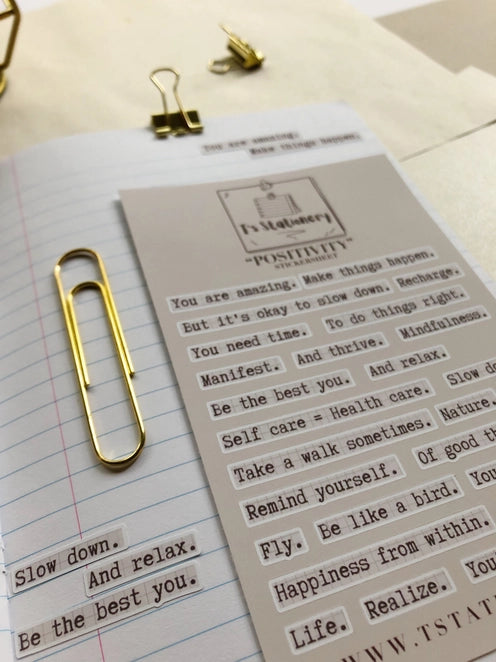 You are amazing.
Make things happen.
T's Stationery
"POSITIVITY"
STICKERSHEET
You are amazing. Make things happen.
But it's okay to slow down. Recharge.
You need time. To do things right.
Manifest. And thrive. Mindfulness.
Be the best you. And relax.
Self care = Health care. Slow do
Take a walk sometimes. Nature.
Remind yourself. Of good th
Fly. Be like a bird. You
Happiness from within.
Life. Realize. You
WWW.TSTAT
Slow down.
And relax.
Be the best you.